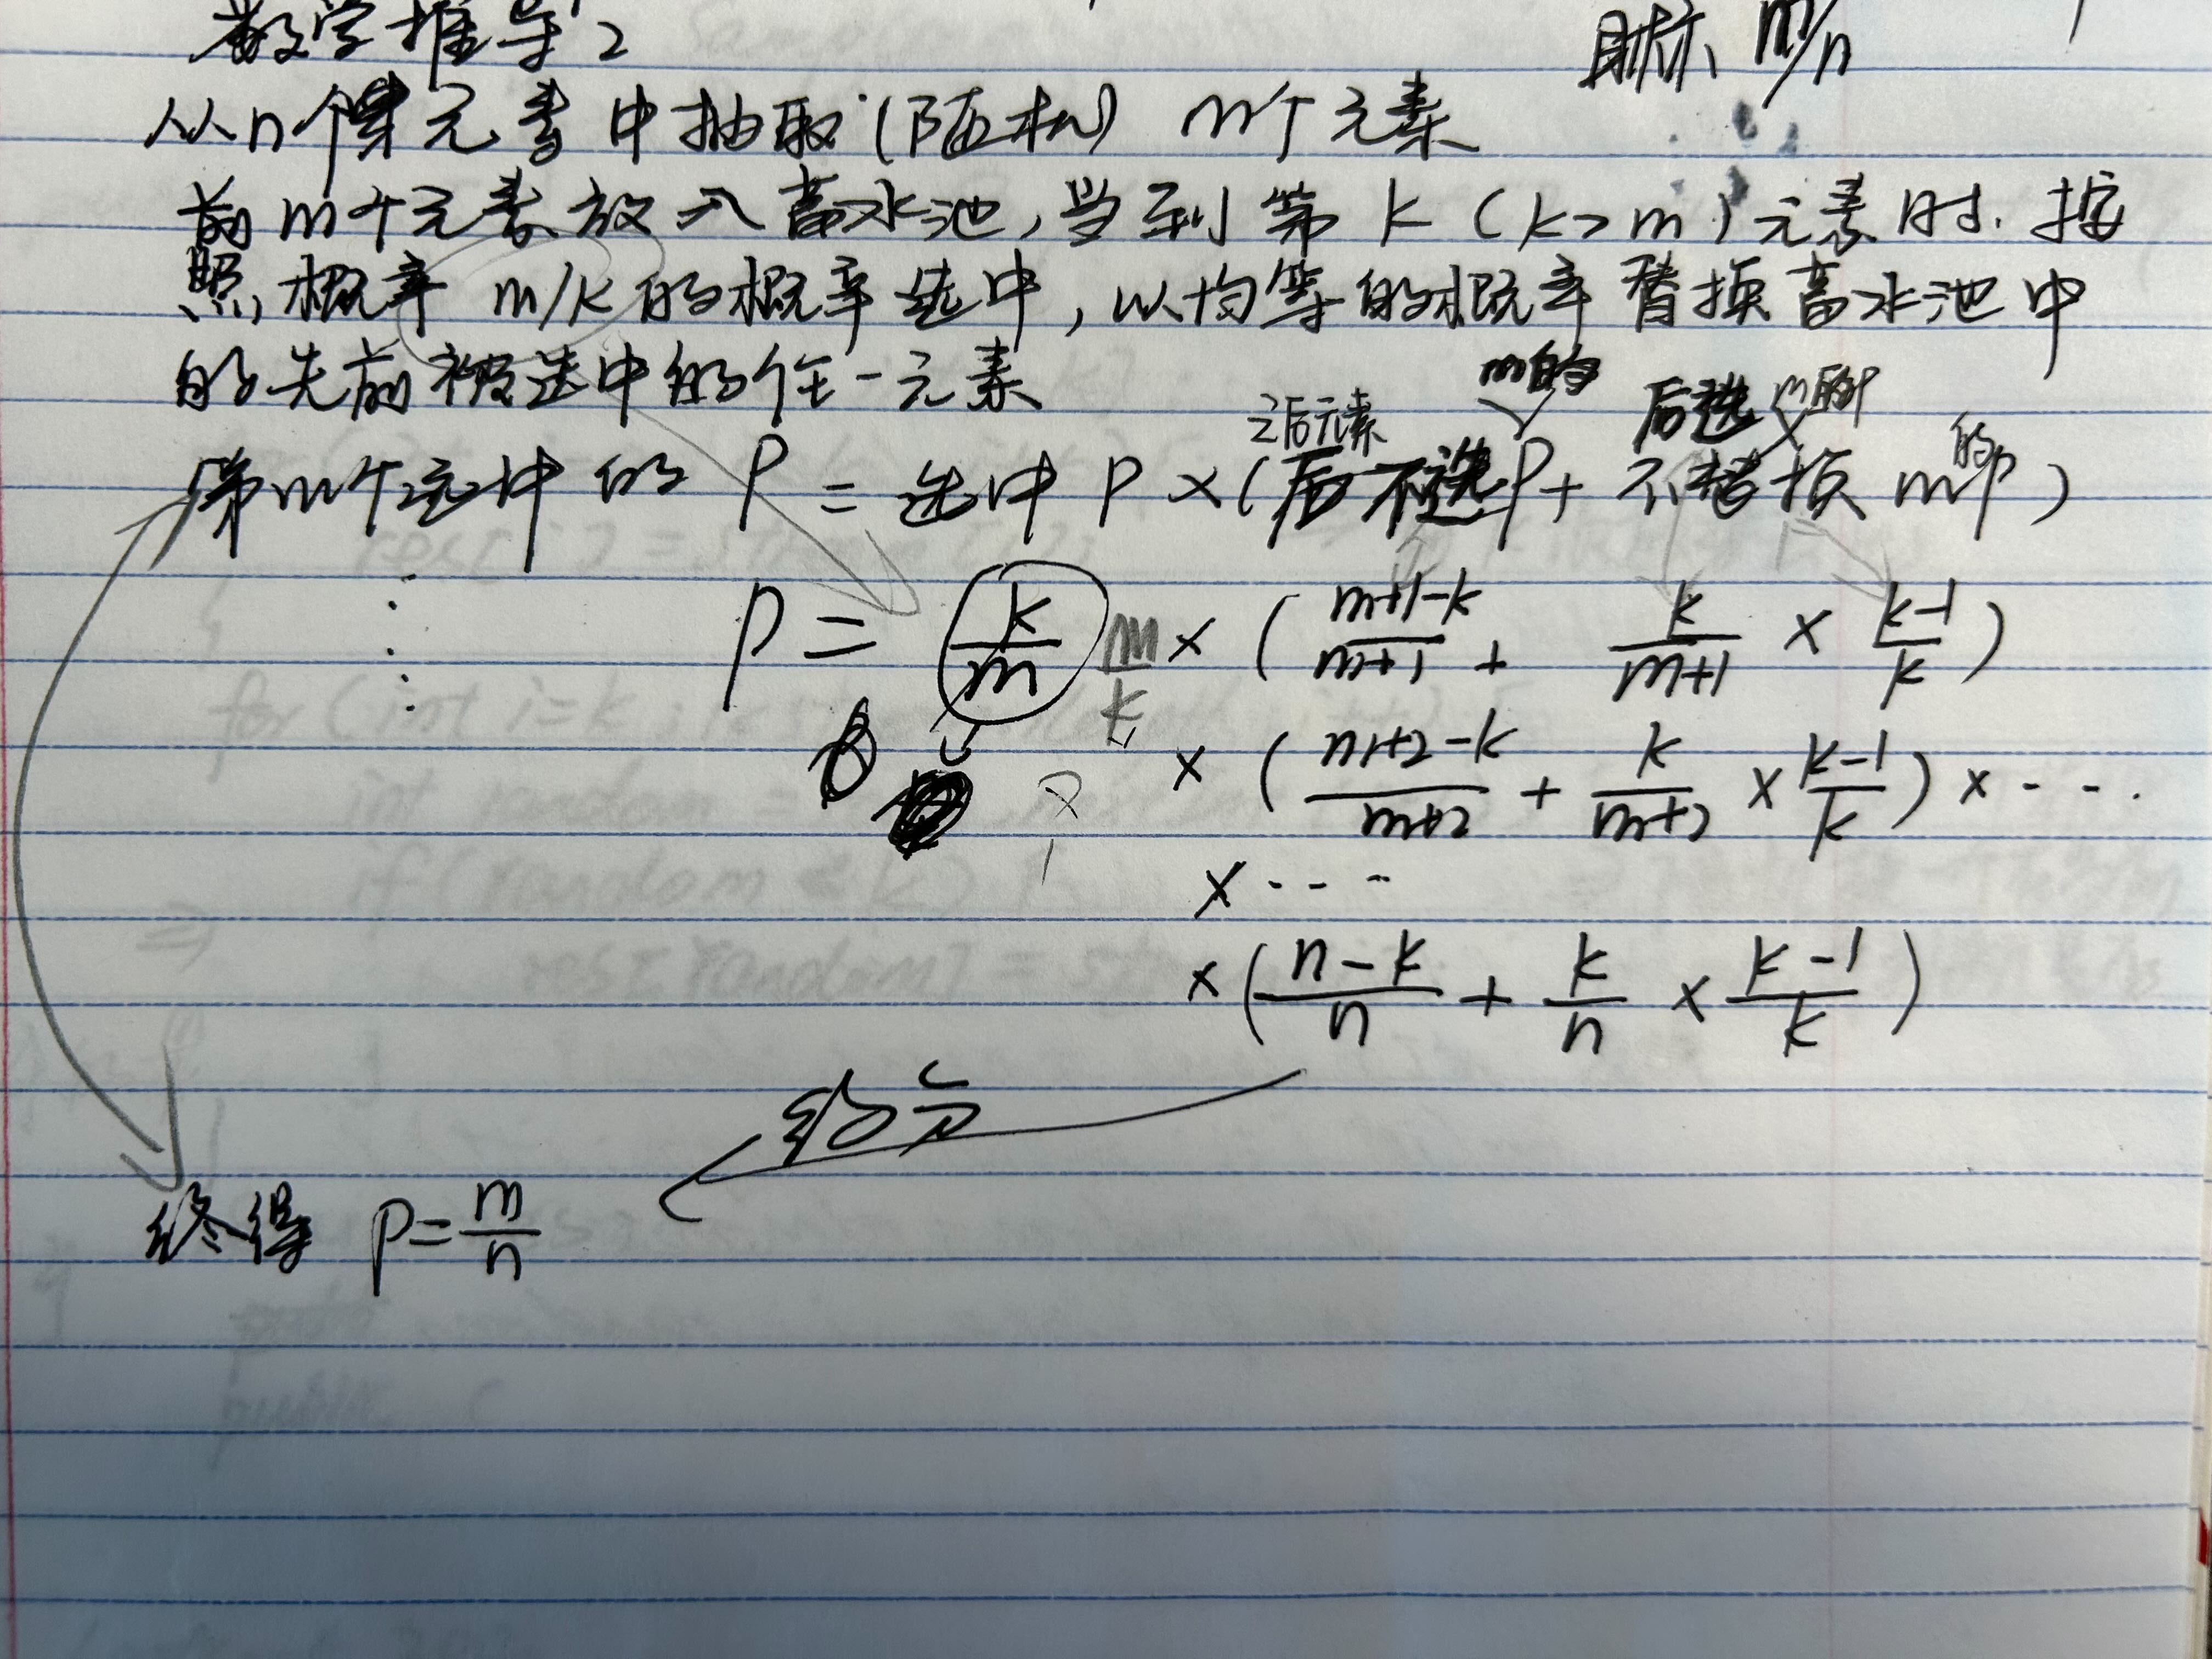 数学推导2 目标 m/n
从n个元素中抽取(随机) m个元素
前m个元素放入蓄水池,当到第 k (k>m) 元素时. 按
照概率 m/k 的概率选中,以均等的概率替换蓄水池中
的先前被选中的任一元素
之后元素 m的 后选 m的P
第m个选中的 P = 选中 P × (后不选P + 不替换 m的P)
P = k/m m/k × ( m+1-k/m+1 + k/m+1 × k-1/k )
× ( m+2-k/m+2 + k/m+2 × k-1/k ) × ...
× ...
× ( n-k/n + k/n × k-1/k )
约分
终得 P = m/n